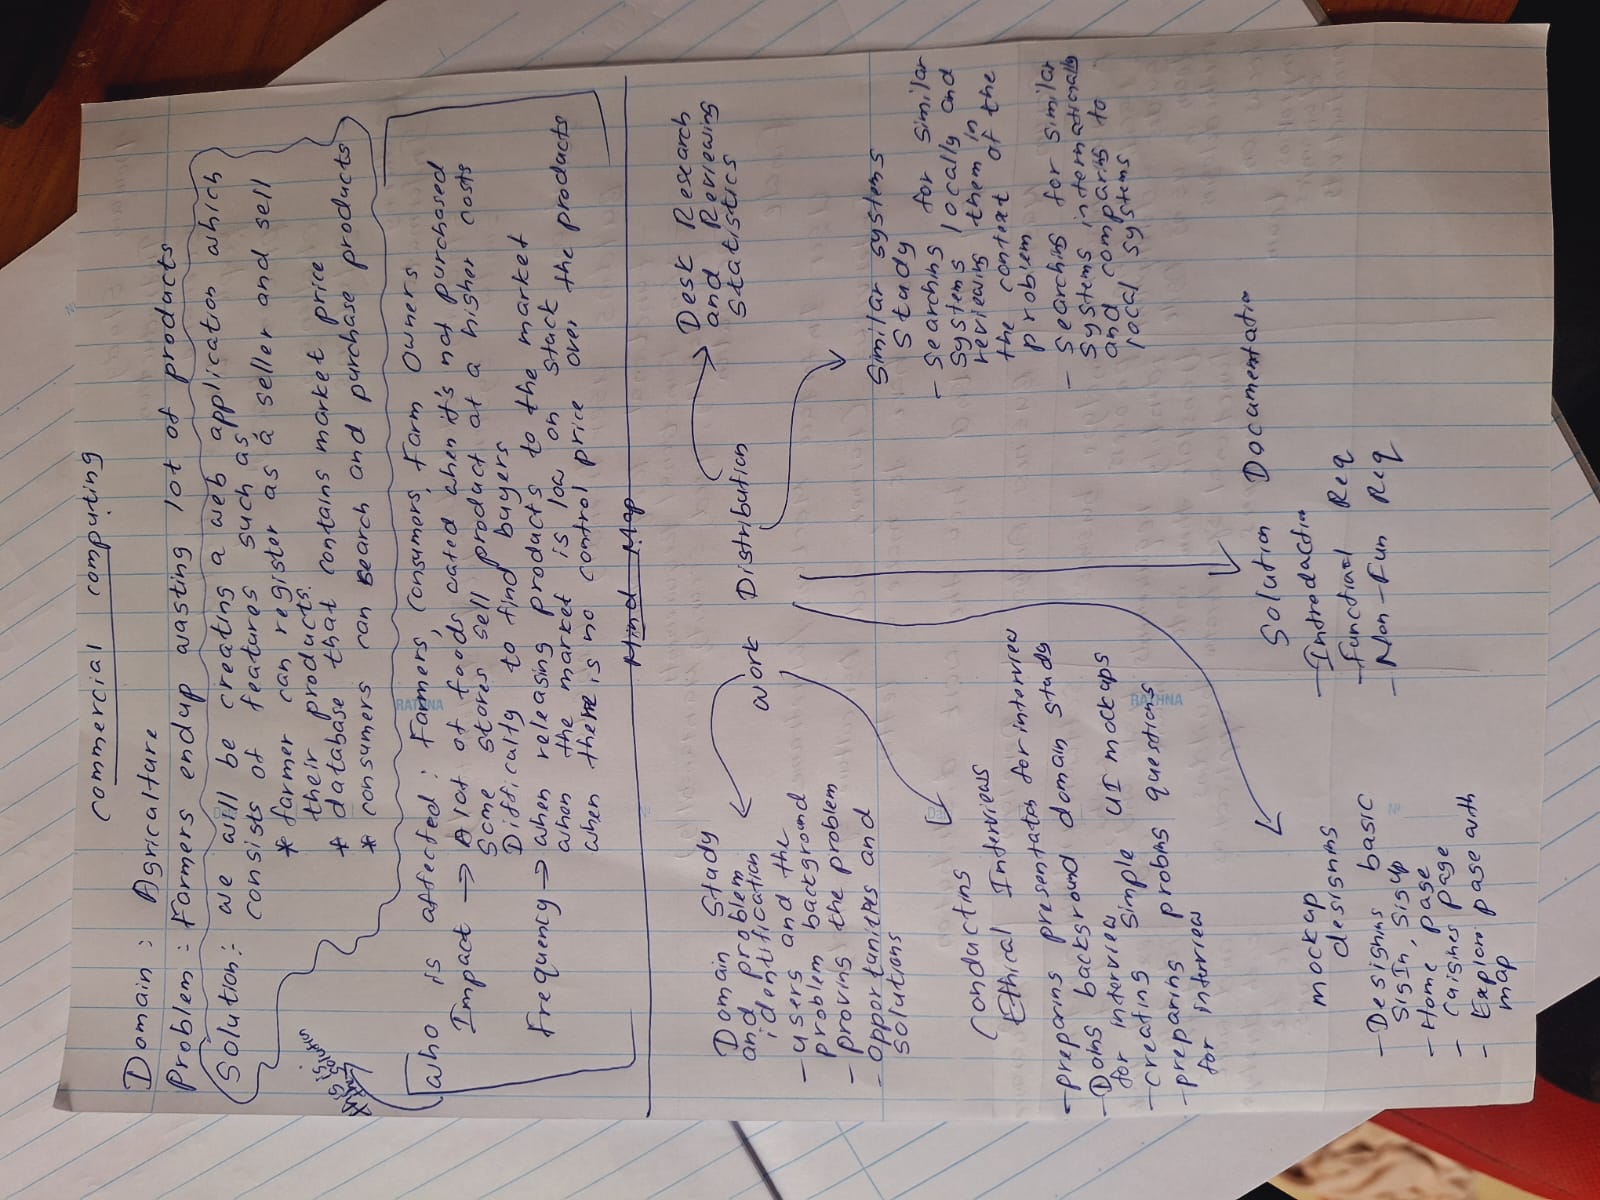 commercial computing
Domain : Agriculture
Problem : Farmers endup wasting lot of products
Solution :- we will be creating a web application which
consists of features such as,
* farmer can register as a seller and sell
their products.
* database that contains market price
* consumers can search and purchase products
this is
the solution
who is affected : Farmers, Consumers, Farm Owners
Impact → A lot of foods when it's not purchased
Some stores sell product at a higher costs
Difficulty to find buyers
Frequency → when releasing products to the market
when the market is low on stock
when there is no control price over the products
Mind Map
Work Distribution
Domain Study
and problem
identification
- users and the
problem background
- proving the problem
- Opportunities and
solutions
Desk Research
and Reviewing
Statistics
Similar systems
Study
- Searching for similar
systems locally and
reviewing them in
the context of the
problem
- Searching for similar
systems internationally
and comparing to
local systems
Conducting
Ethical Interviews
- preparing for interview
- Doing background domain study
for interview
- creating simple UI mockups
- preparing probing questions
for interview
mockup
designing
- Designing basic
SigIn, Sigup
- Home page
- page
- Explore page with
map
Solution Documentation
- Introduction
- Functional Req
- Non-Fun Req
RATHNA
RATHNA